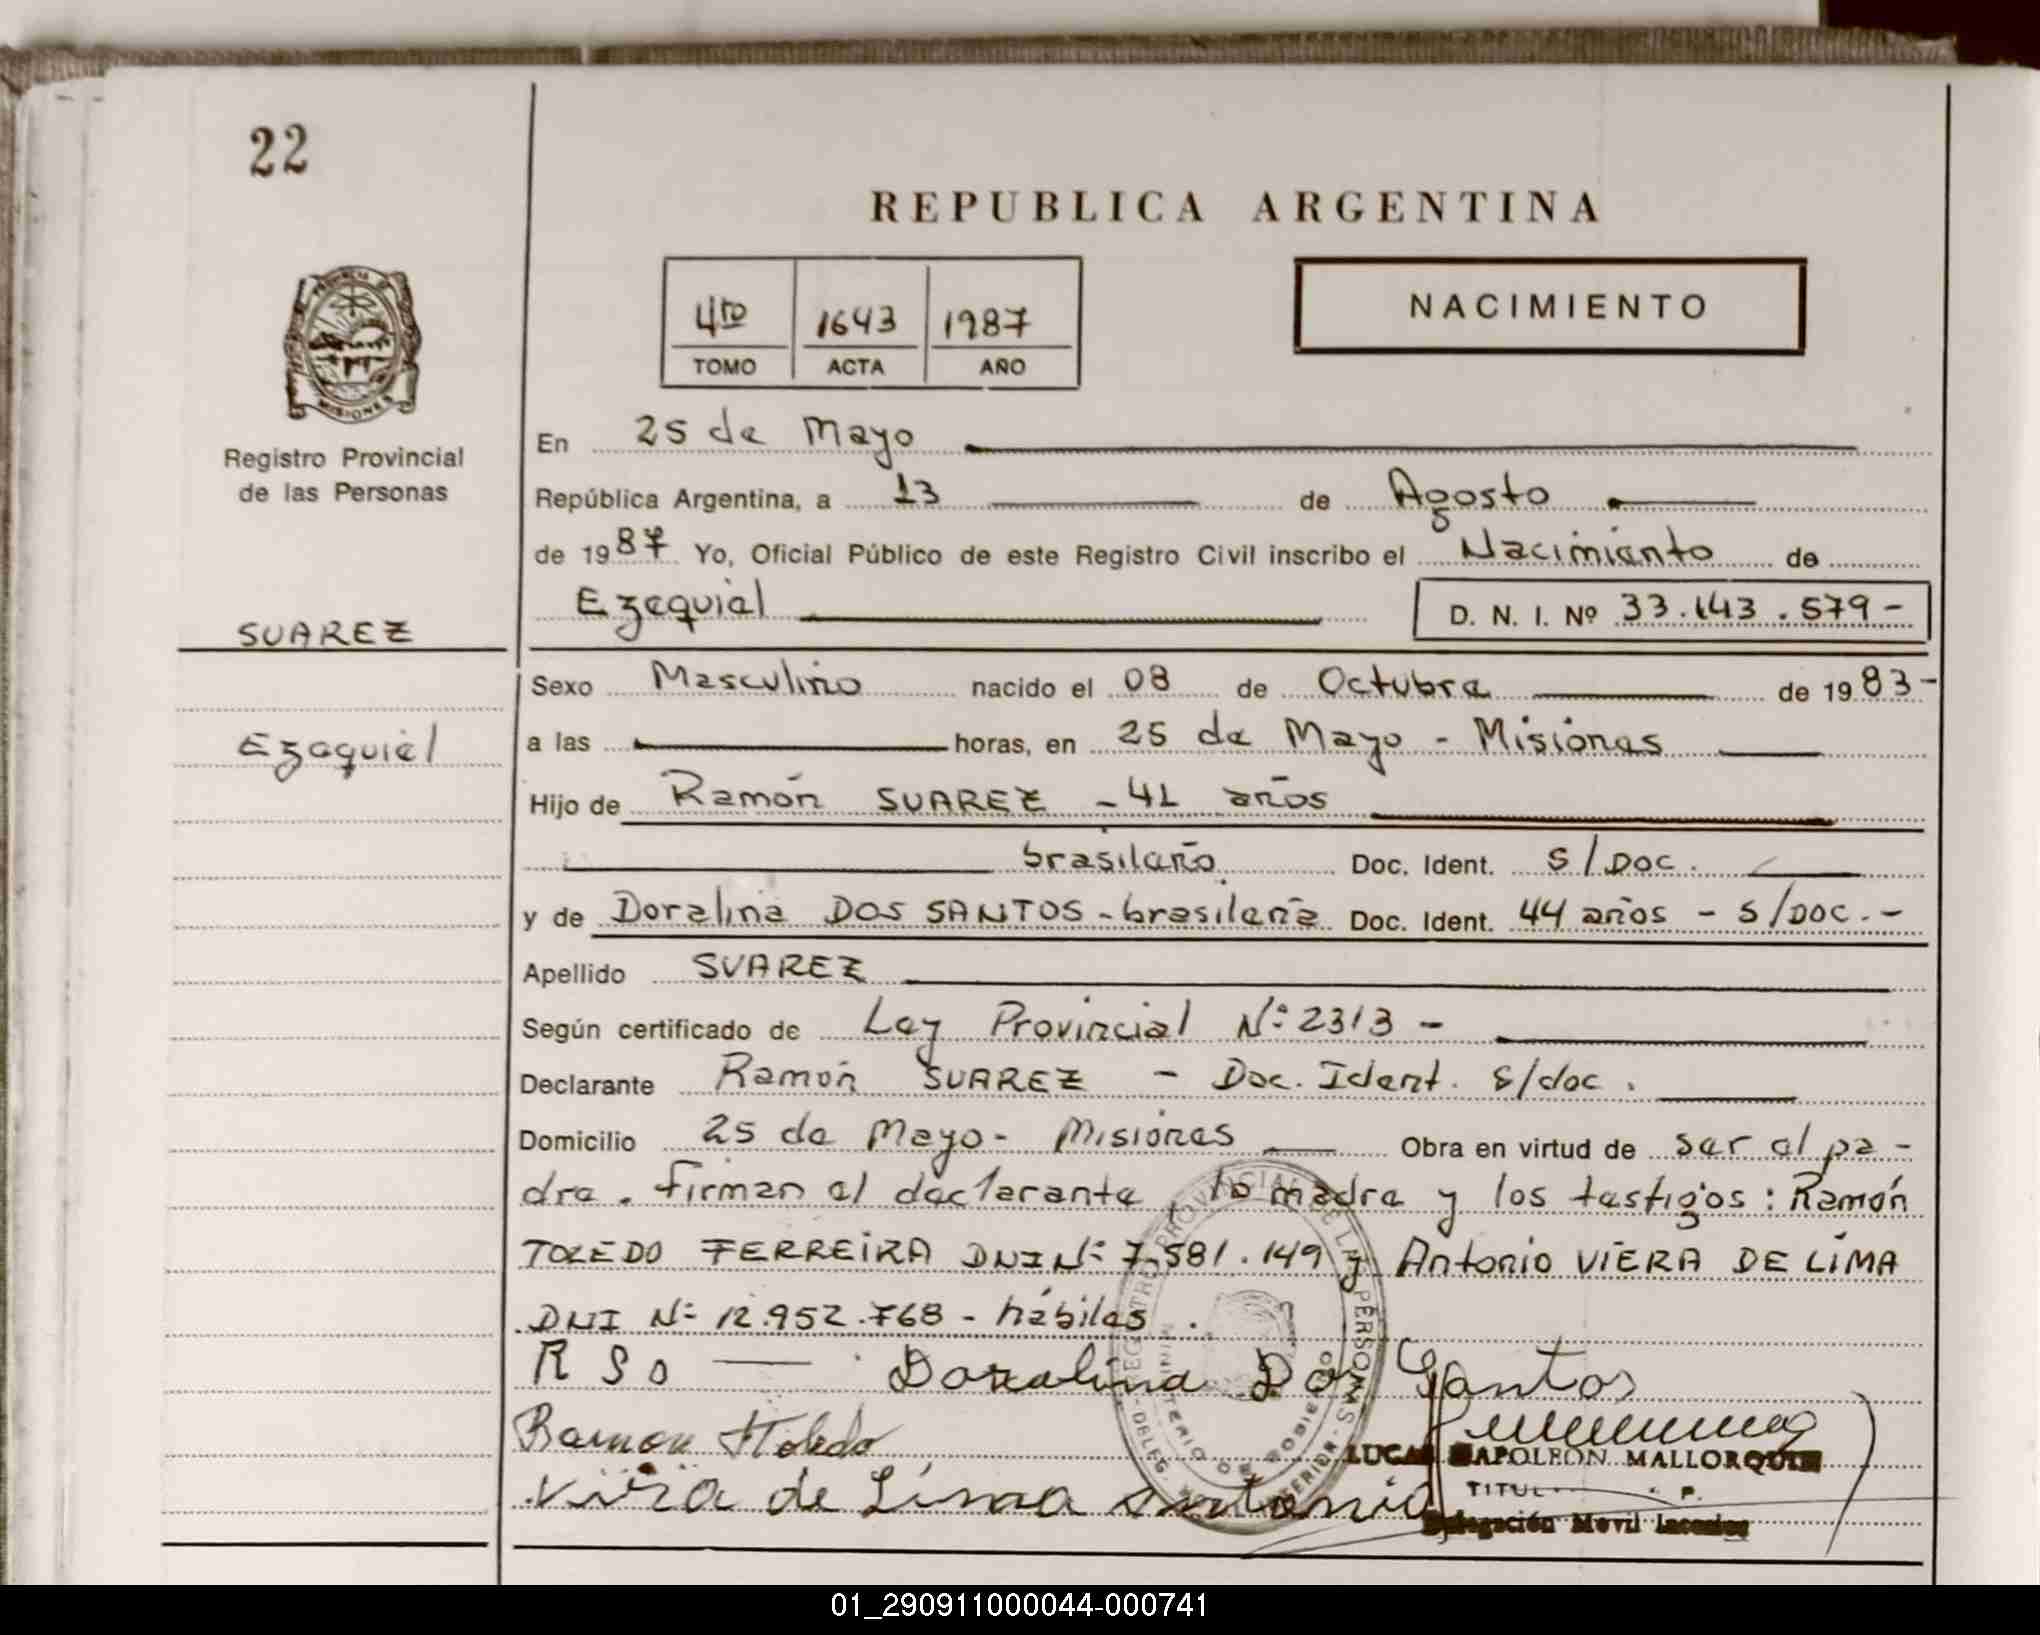 22
REPUBLICA ARGENTINA
4to 1643 1987
TOMO ACTA AÑO
NACIMIENTO
MISIONES
Registro Provincial
de las Personas
SUAREZ
Ezequiel
En 25 de Mayo
República Argentina, a 13 de Agosto
de 1987 Yo, Oficial Público de este Registro Civil inscribo el Nacimiento de
Ezequiel D. N. I. Nº 33.143.579-
Sexo Masculino nacido el 08 de Octubre de 1983-
a las horas, en 25 de Mayo - Misiones
Hijo de Ramón SUAREZ - 41 años
brasileño Doc. Ident. S/DOC.
y de Doralina DOS SANTOS - brasileña Doc. Ident. 44 años - S/DOC.-
Apellido SUAREZ
Según certificado de Ley Provincial Nº 2313 -
Declarante Ramón SUAREZ - Doc. Ident. S/doc.
Domicilio 25 de Mayo - Misiones Obra en virtud de ser el pa-
dre. Firman el declarante, la madre y los testigos: Ramón
TOLEDO FERREIRA DNI Nº 7.581.149 y Antonio VIERA DE LIMA
DNI Nº 12.952.768 - hábiles.
R S O — Doralina Dos Santos
Ramon Toledo
LUCAS NAPOLEON MALLORQUIN
viera de Lima antonio
TITUL P.
Delegación Movil
REGISTRO PROVINCIAL DE LAS PERSONAS
MINISTERIO DE GOBIERNO
01_290911000044-000741